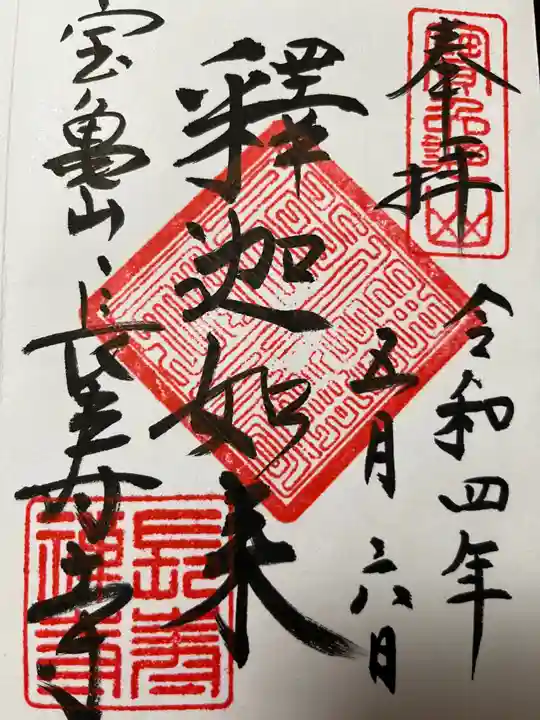 奉拝
令和四年
五月六日
釋迦如来
宝亀山長寿寺
長寿禅寺